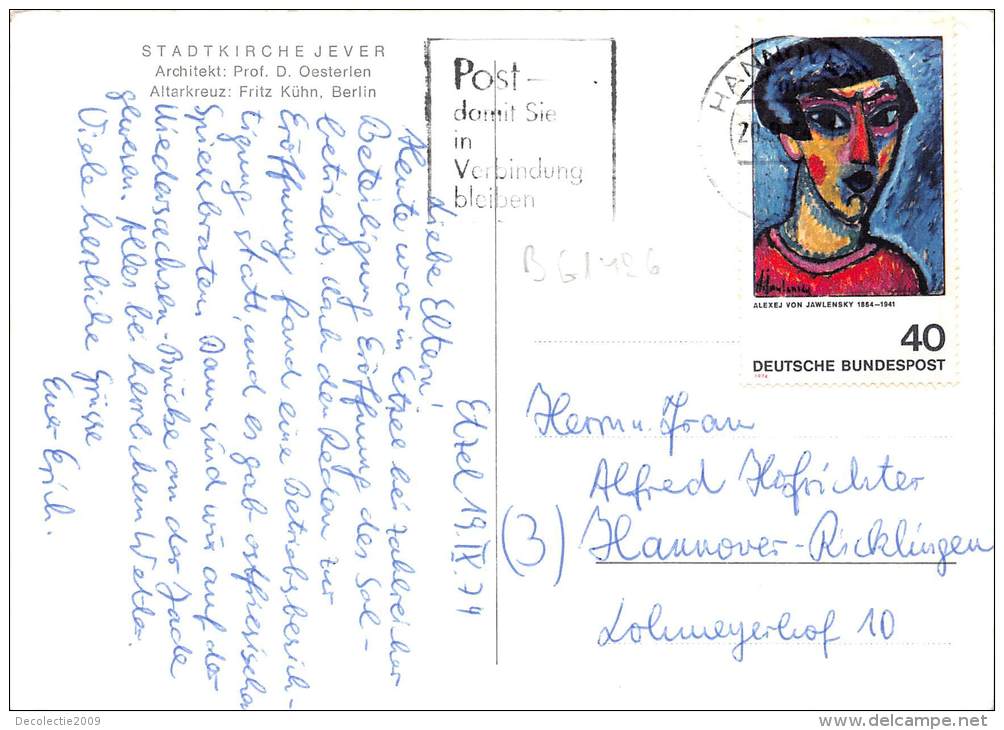 STADTKIRCHE JEVER
Architekt: Prof. D. Oesterlen
Altarkreuz: Fritz Kühn, Berlin
Post –
damit Sie
in
Verbindung
bleiben
HANNOVER
ALEXEJ VON JAWLENSKY 1864–1941
40
DEUTSCHE BUNDESPOST
1974
B G1126
Etzel 19.IX.74
Liebe Eltern,
Heute war in Etzel bei zahlreicher
Beteiligung Eröffnung des Sol-
betriebs. Nach den Reden zur
Eröffnung fand eine Betriebsbesich-
tigung statt, und es gab ostfriesische
Spiessbraten. Dann sind wir auf der
Niedersachsen-Brücke an der Jade
gewesen. Alles bei herrlichem Wetter.
Viele herzliche Grüsse
Euer Erich.
Herrn u. Frau
Alfred Hofrichter
(3) Hannover-Ricklingen
Lohmeyerhof 10
Decolectie2009
delcampe.net